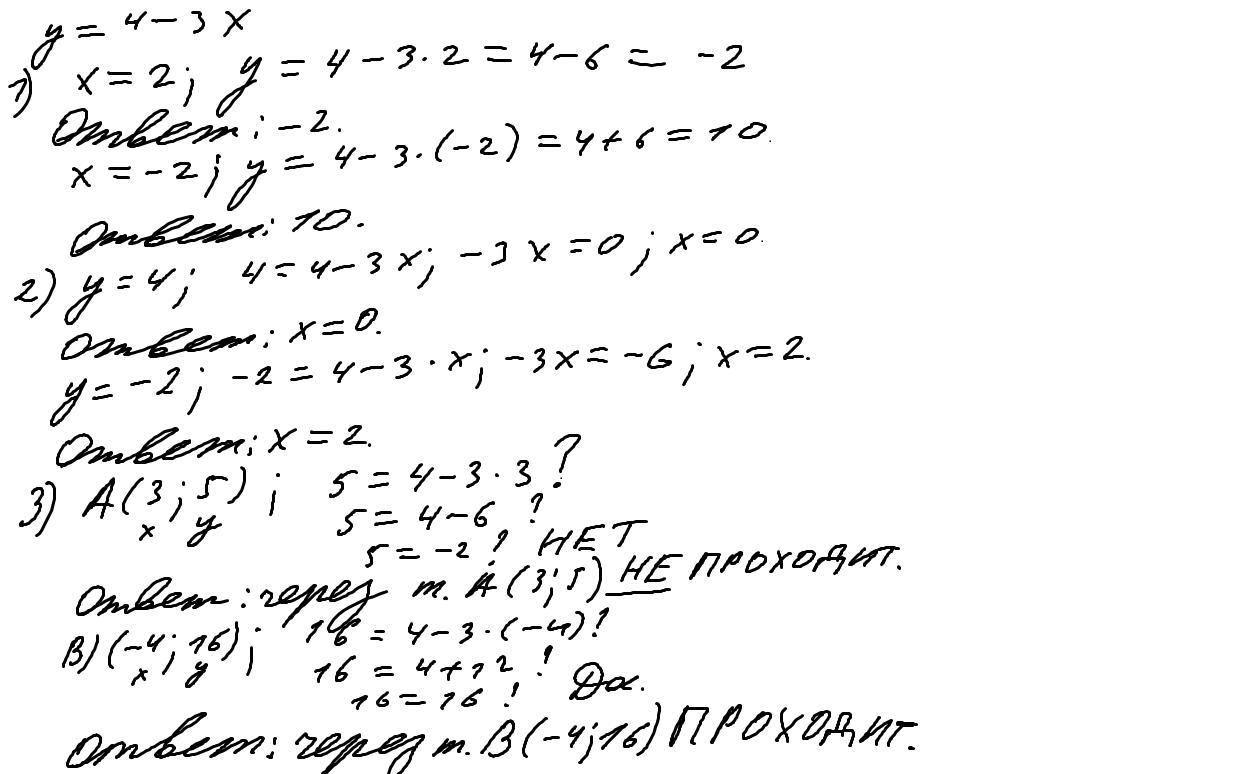 y = 4 - 3x
1) x = 2; y = 4 - 3·2 = 4 - 6 = -2
Ответ: -2.
x = -2; y = 4 - 3·(-2) = 4 + 6 = 10.
Ответ: 10.
2) y = 4; 4 = 4 - 3x; -3x = 0; x = 0.
Ответ: x = 0.
y = -2; -2 = 4 - 3·x; -3x = -6; x = 2.
Ответ: x = 2.
3) A(3; 5); 5 = 4 - 3·3?
x y 5 = 4 - 6 ?
5 = -2 ? НЕТ
Ответ: через т. A(3; 5) НЕ ПРОХОДИТ.
B)(-4; 16); 16 = 4 - 3·(-4)?
x y 16 = 4 + 12 ?
16 = 16 ? Да.
Ответ: через т. B(-4; 16) ПРОХОДИТ.